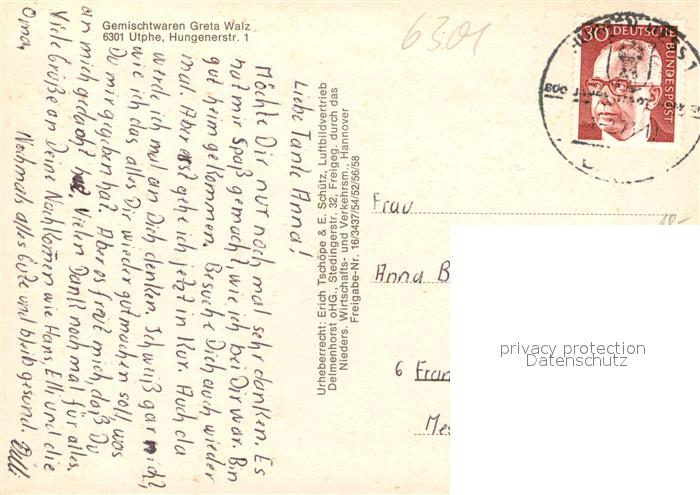 Gemischtwaren Greta Walz
6301 Utphe, Hungenerstr. 1
6301
30 DEUTSCHE BUNDESPOST
Liebe Tante Anna!
Möchte Dir nur noch mal sehr danken. Es
hat mir Spaß gemacht, wie ich bei Dir war. Bin
gut heim gekommen. Besuche Dich auch wieder
mal. Aber erst gehe ich jetzt in Kur. Auch da
werde ich mal an Dich denken. Ich weiß gar nicht,
wie ich das alles Dir wieder gutmachen soll, was
Du mir gegeben hast. Aber es freut mich, daß Du
an mich gedacht hast. Vielen Dank noch mal für alles.
Viele Grüße an Deine Nachkomen wie Hans, Elli und die
Oma.
Nochmals alles Gute und bleib gesund.
Urheberrecht: Erich Tschöpe & E. Schütz, Luftbildvertrieb
Delmenhorst oHG., Stedingerstr. 32, Freigeg. durch das
Nieders. Wirtschafts- und Verkehrsm., Hannover
Freigabe-Nr. 16/3437/54/52/56/58
Frau
Anna B
6 Fran
Mes
privacy protection
Datenschutz